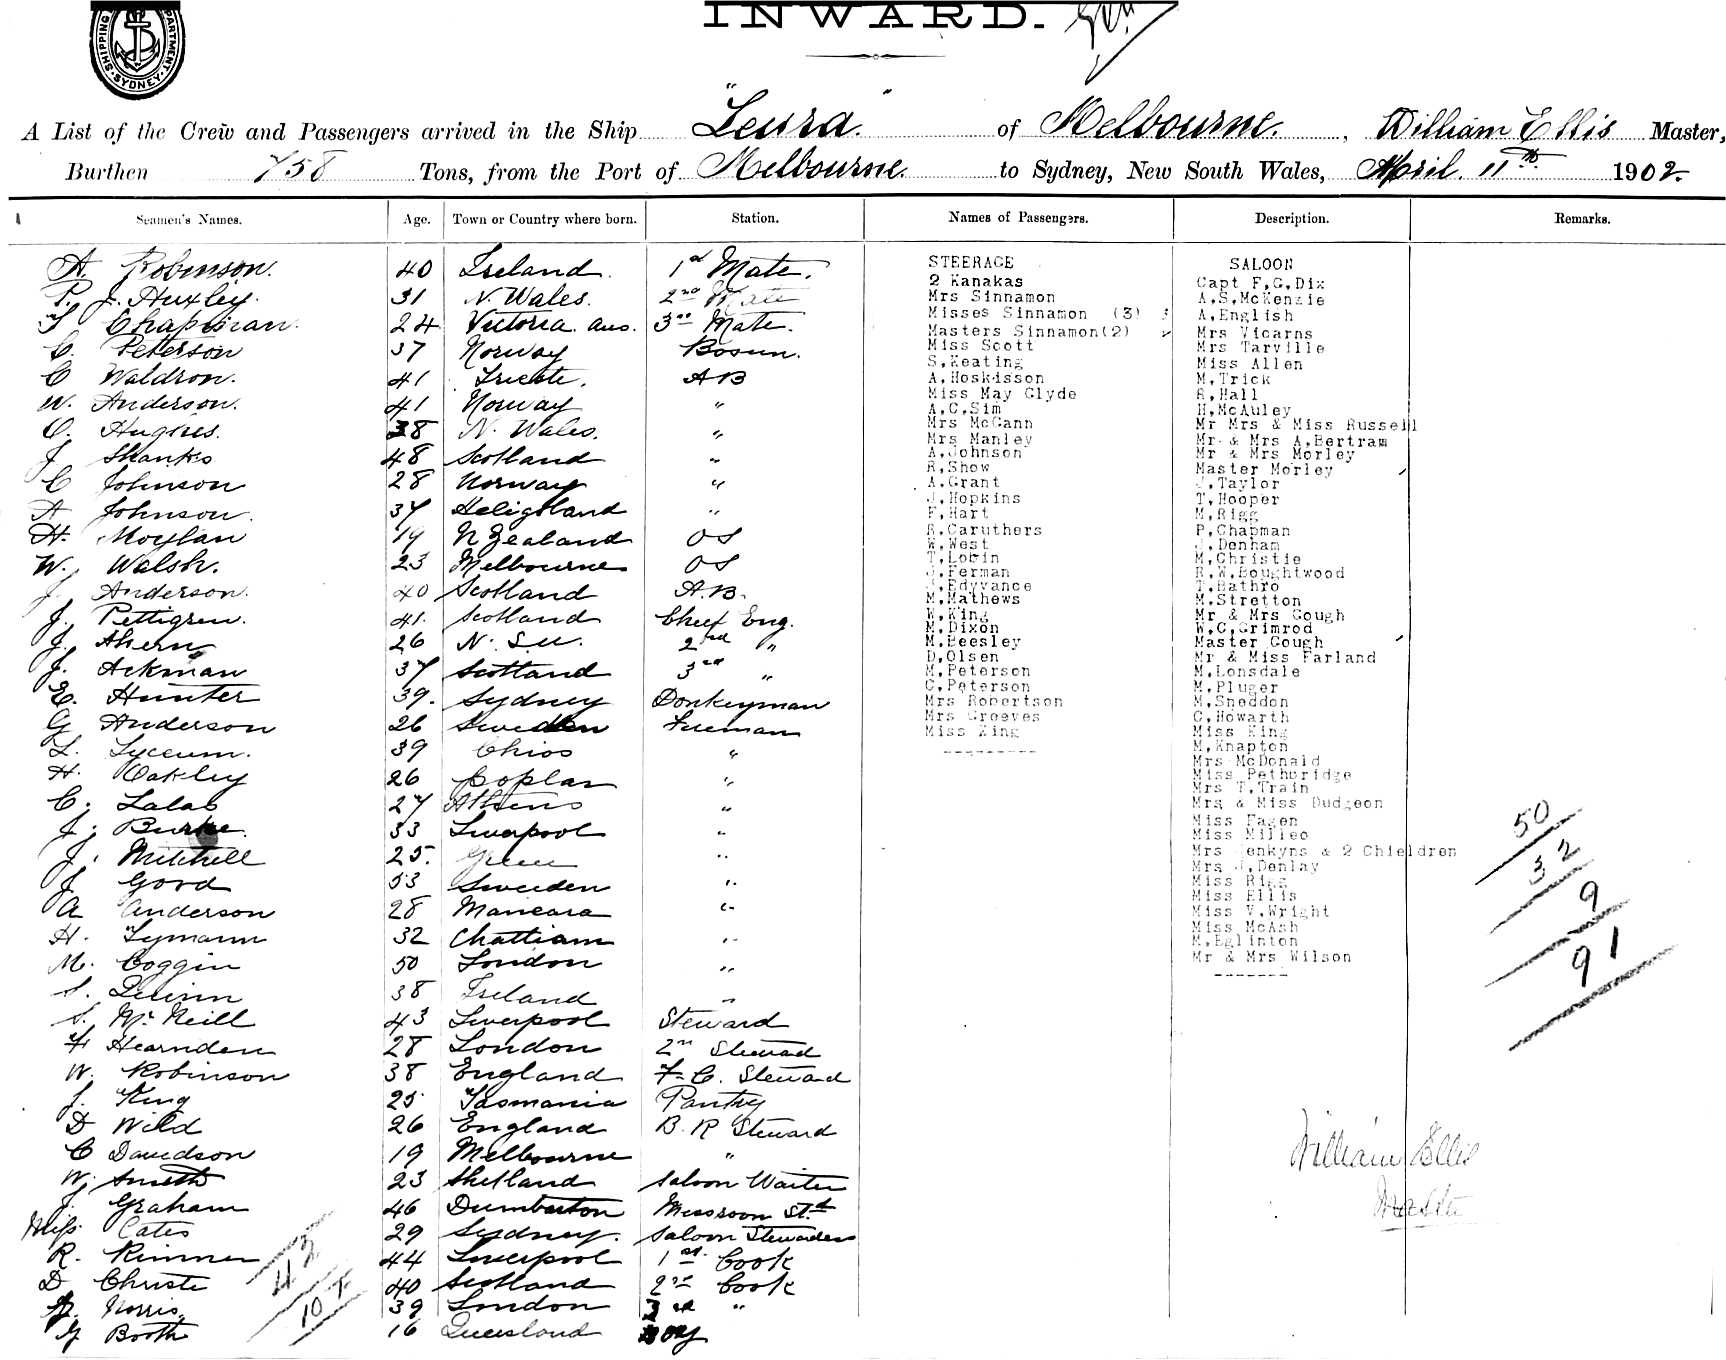 SHIPPING DEPARTMENT. SYDNEY
INWARD.
A List of the Crew and Passengers arrived in the Ship "Leura." of Melbourne., William Ellis Master,
Burthen 758 Tons, from the Port of Melbourne. to Sydney, New South Wales, April. 11th 1902.
Seamen's Names. Age. Town or Country where born. Station. Names of Passengers. Description. Remarks.
A. Robinson. 40 Ireland. 1st Mate.
P. J. Huxley. 31 N. Wales. 2nd Mate
Chapman. 24 Victoria Aus. 3rd Mate.
C. Peterson 37 Norway Bosun.
C Waldron. 41 Trieste. AB
W. Anderson. 41 Norway "
O. Hughes. 38 N. Wales. "
J Shanks 48 Scotland "
C Johnson 28 Norway "
A Johnson. 37 Heligoland "
H. Moylan 19 N Zealand OS
W. Walsh. 23 Melbourne OS
J. Anderson. 40 Scotland A.B.
J. Pettigrew. 41. Scotland Chief Eng.
J. Ahern 26 N.S.W. 2nd "
J. Ackman 37 Scotland 3rd "
E. Hunter 39. Sydney Donkeyman
G Anderson 26 Sweden Fireman
L. Lyceum. 39 Chios "
H. Oakley 26 Poplar "
C. Lalas 27 Athens "
J. Burke. 33 Liverpool "
J. Mitchell 25. "
J Good 53 Sweden "
A Anderson 28 "
H. Lymann 32 Chatham "
M. Coggin 50 London "
S. Quinn 38 Ireland "
S. McNeill 43 Liverpool Steward
F Hearnden 28 London 2nd Steward
W. Robinson 38 England F. C. Steward
J. King 25 Tasmania Pantry
D Wild 26 England B. R Steward
C Davidson 19 Melbourne "
W. Smith 23 Shetland Saloon Waiter
J. Graham 46 Dumbarton Messroom Std
Miss Cates 29 Sydney. Saloon Stewardess
R. Rimmer 44 Liverpool 1st Cook
D Christe 40 Scotland 2nd Cook
Norris 39 London 3rd "
G Booth 16 Queensland Boy
42
10 F
STEERAGE
2 Kanakas
Mrs Sinnamon
Misses Sinnamon (3)
Masters Sinnamon(2)
Miss Scott
S.Keating
A.Hoskisson
Miss May Clyde
A.C.Sim
Mrs McCann
Mrs Manley
A.Johnson
R.Show
A.Grant
J.Hopkins
F.Hart
R.Caruthers
W.West
T.Lobin
J.Ferman
J.Edyvance
M.Mathews
W.King
M.Dixon
M.Beesley
D.Olsen
M.Peterson
C.Peterson
Mrs Robertson
Mrs Greeves
Miss King
SALOON
Capt F.G.Dix
A.S.McKenzie
A.English
Mrs Vicarns
Mrs Tarville
Miss Allen
M.Trick
R.Hall
H.McAuley
Mr Mrs & Miss Russell
Mr & Mrs A.Bertram
Mr & Mrs Morley
Master Morley
J.Taylor
T.Hooper
M.Rigg
P.Chapman
J.Denham
M.Christie
R.W.Boughtwood
T.Rathro
M.Stretton
Mr & Mrs Gough
W.C.Grimrod
Master Gough
Mr & Miss Farland
M.Lonsdale
M.Pluger
M.Sneddon
C.Howarth
Miss King
M.Knapton
Mrs McDonald
Miss Petheridge
Mrs T.Train
Mrs & Miss Dudgeon
Miss Fagen
Miss Milleo
Mrs Jenkyns & 2 Chieldren
Mrs J.Denlay
Miss Rigg
Miss Ellis
Miss V.Wright
Miss McAsh
M.Eglinton
Mr & Mrs Wilson
50
32
9
91
William Ellis
Master